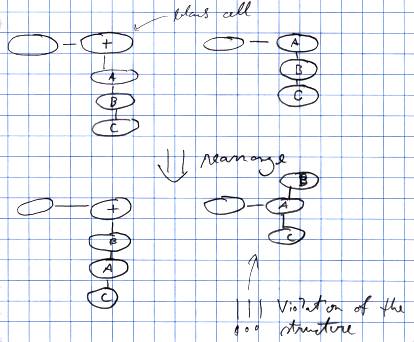 plus cell
+ A
A B
B C
C
rearrange
B
+ A
B C
A
C
!!! Violation of the
structure